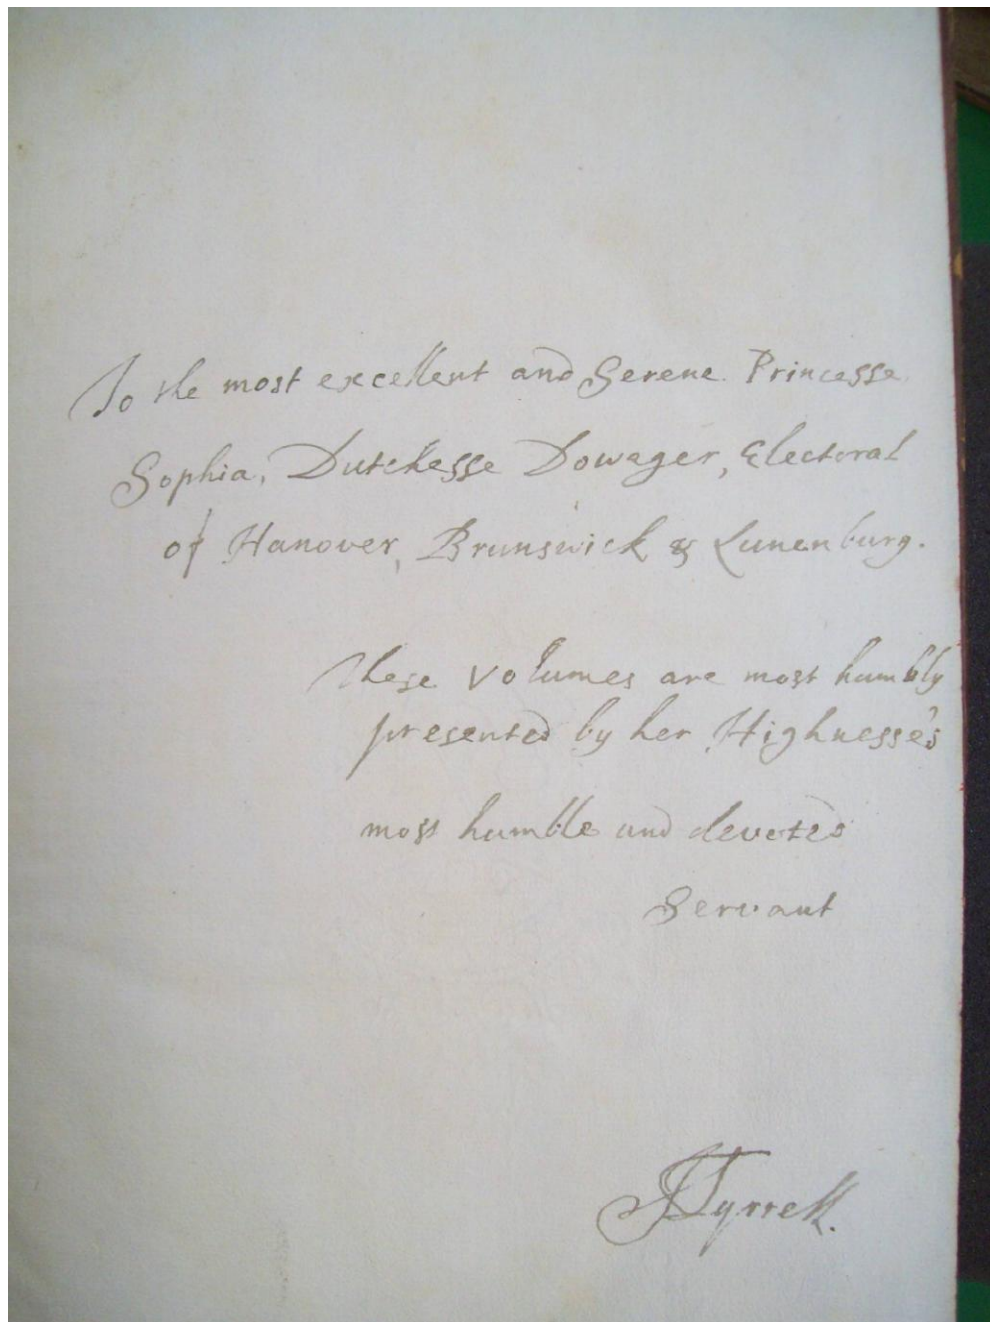 To the most excellent and Serene Princesse
Sophia, Dutchesse Dowager, Electoral
of Hanover, Brunswick & Lunenburg.
These volumes are most humbly
presented by her Highnesse's
most humble and devoted
Servant
JTyrrell.